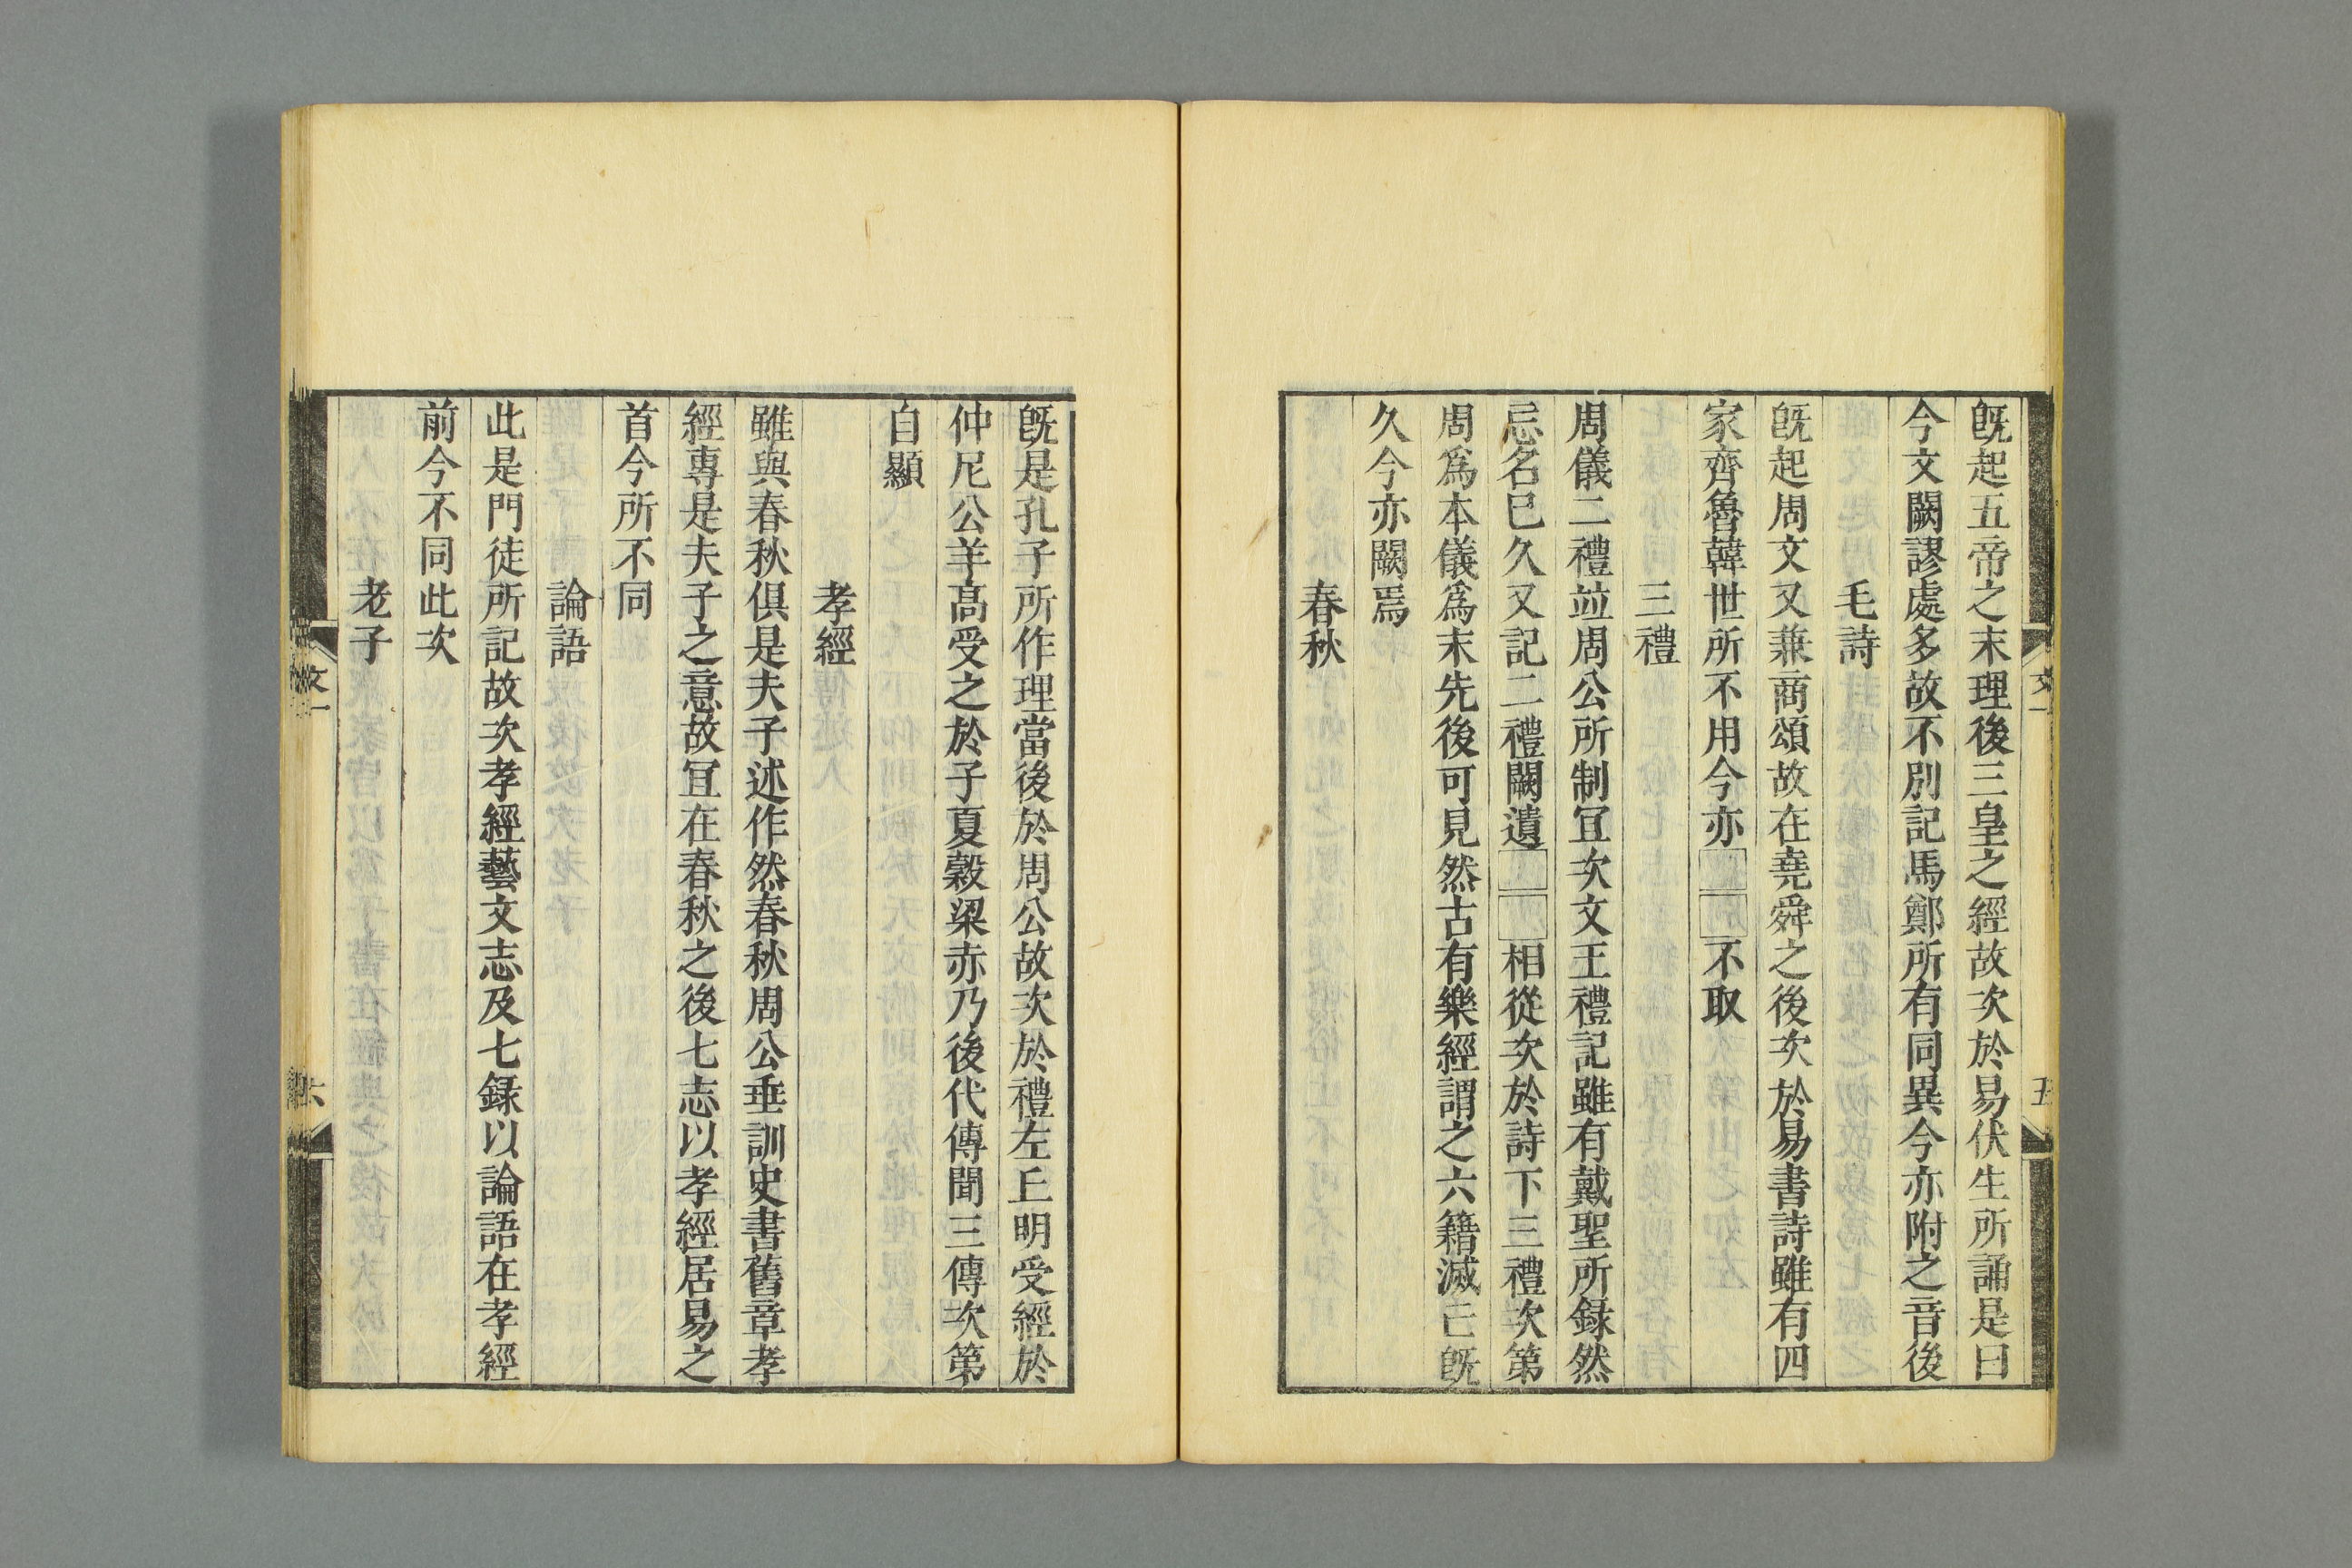 既起五帝之末理後三皇之經故次於易伏生所誦是曰
今文闕謬處多故不別記馬鄭所有同異今亦附之音後
毛詩
既起周文又兼商頌故在堯舜之後次於易書詩雖有四
家齊魯韓世所不用今亦□□不取
三禮
周儀二禮竝周公所制宜次文王禮記雖有戴聖所録然
忘名已久又記二禮闕遺□□相從次於詩下三禮次第
周爲本儀爲末先後可見然古有樂經謂之六籍滅亡既
久今亦闕焉
春秋
文一
五
既是孔子所作理當後於周公故次於禮左丘明受經於
仲尼公羊高受之於子夏穀梁赤乃後代傳聞三傳次第
自顯
孝經
雖與春秋俱是夫子述作然春秋周公垂訓史書舊章孝
經專是夫子之意故宜在春秋之後七志以孝經居易之
首今所不同
論語
此是門徒所記故次孝經藝文志及七録以論語在孝經
前今不同此次
老子
文一
六